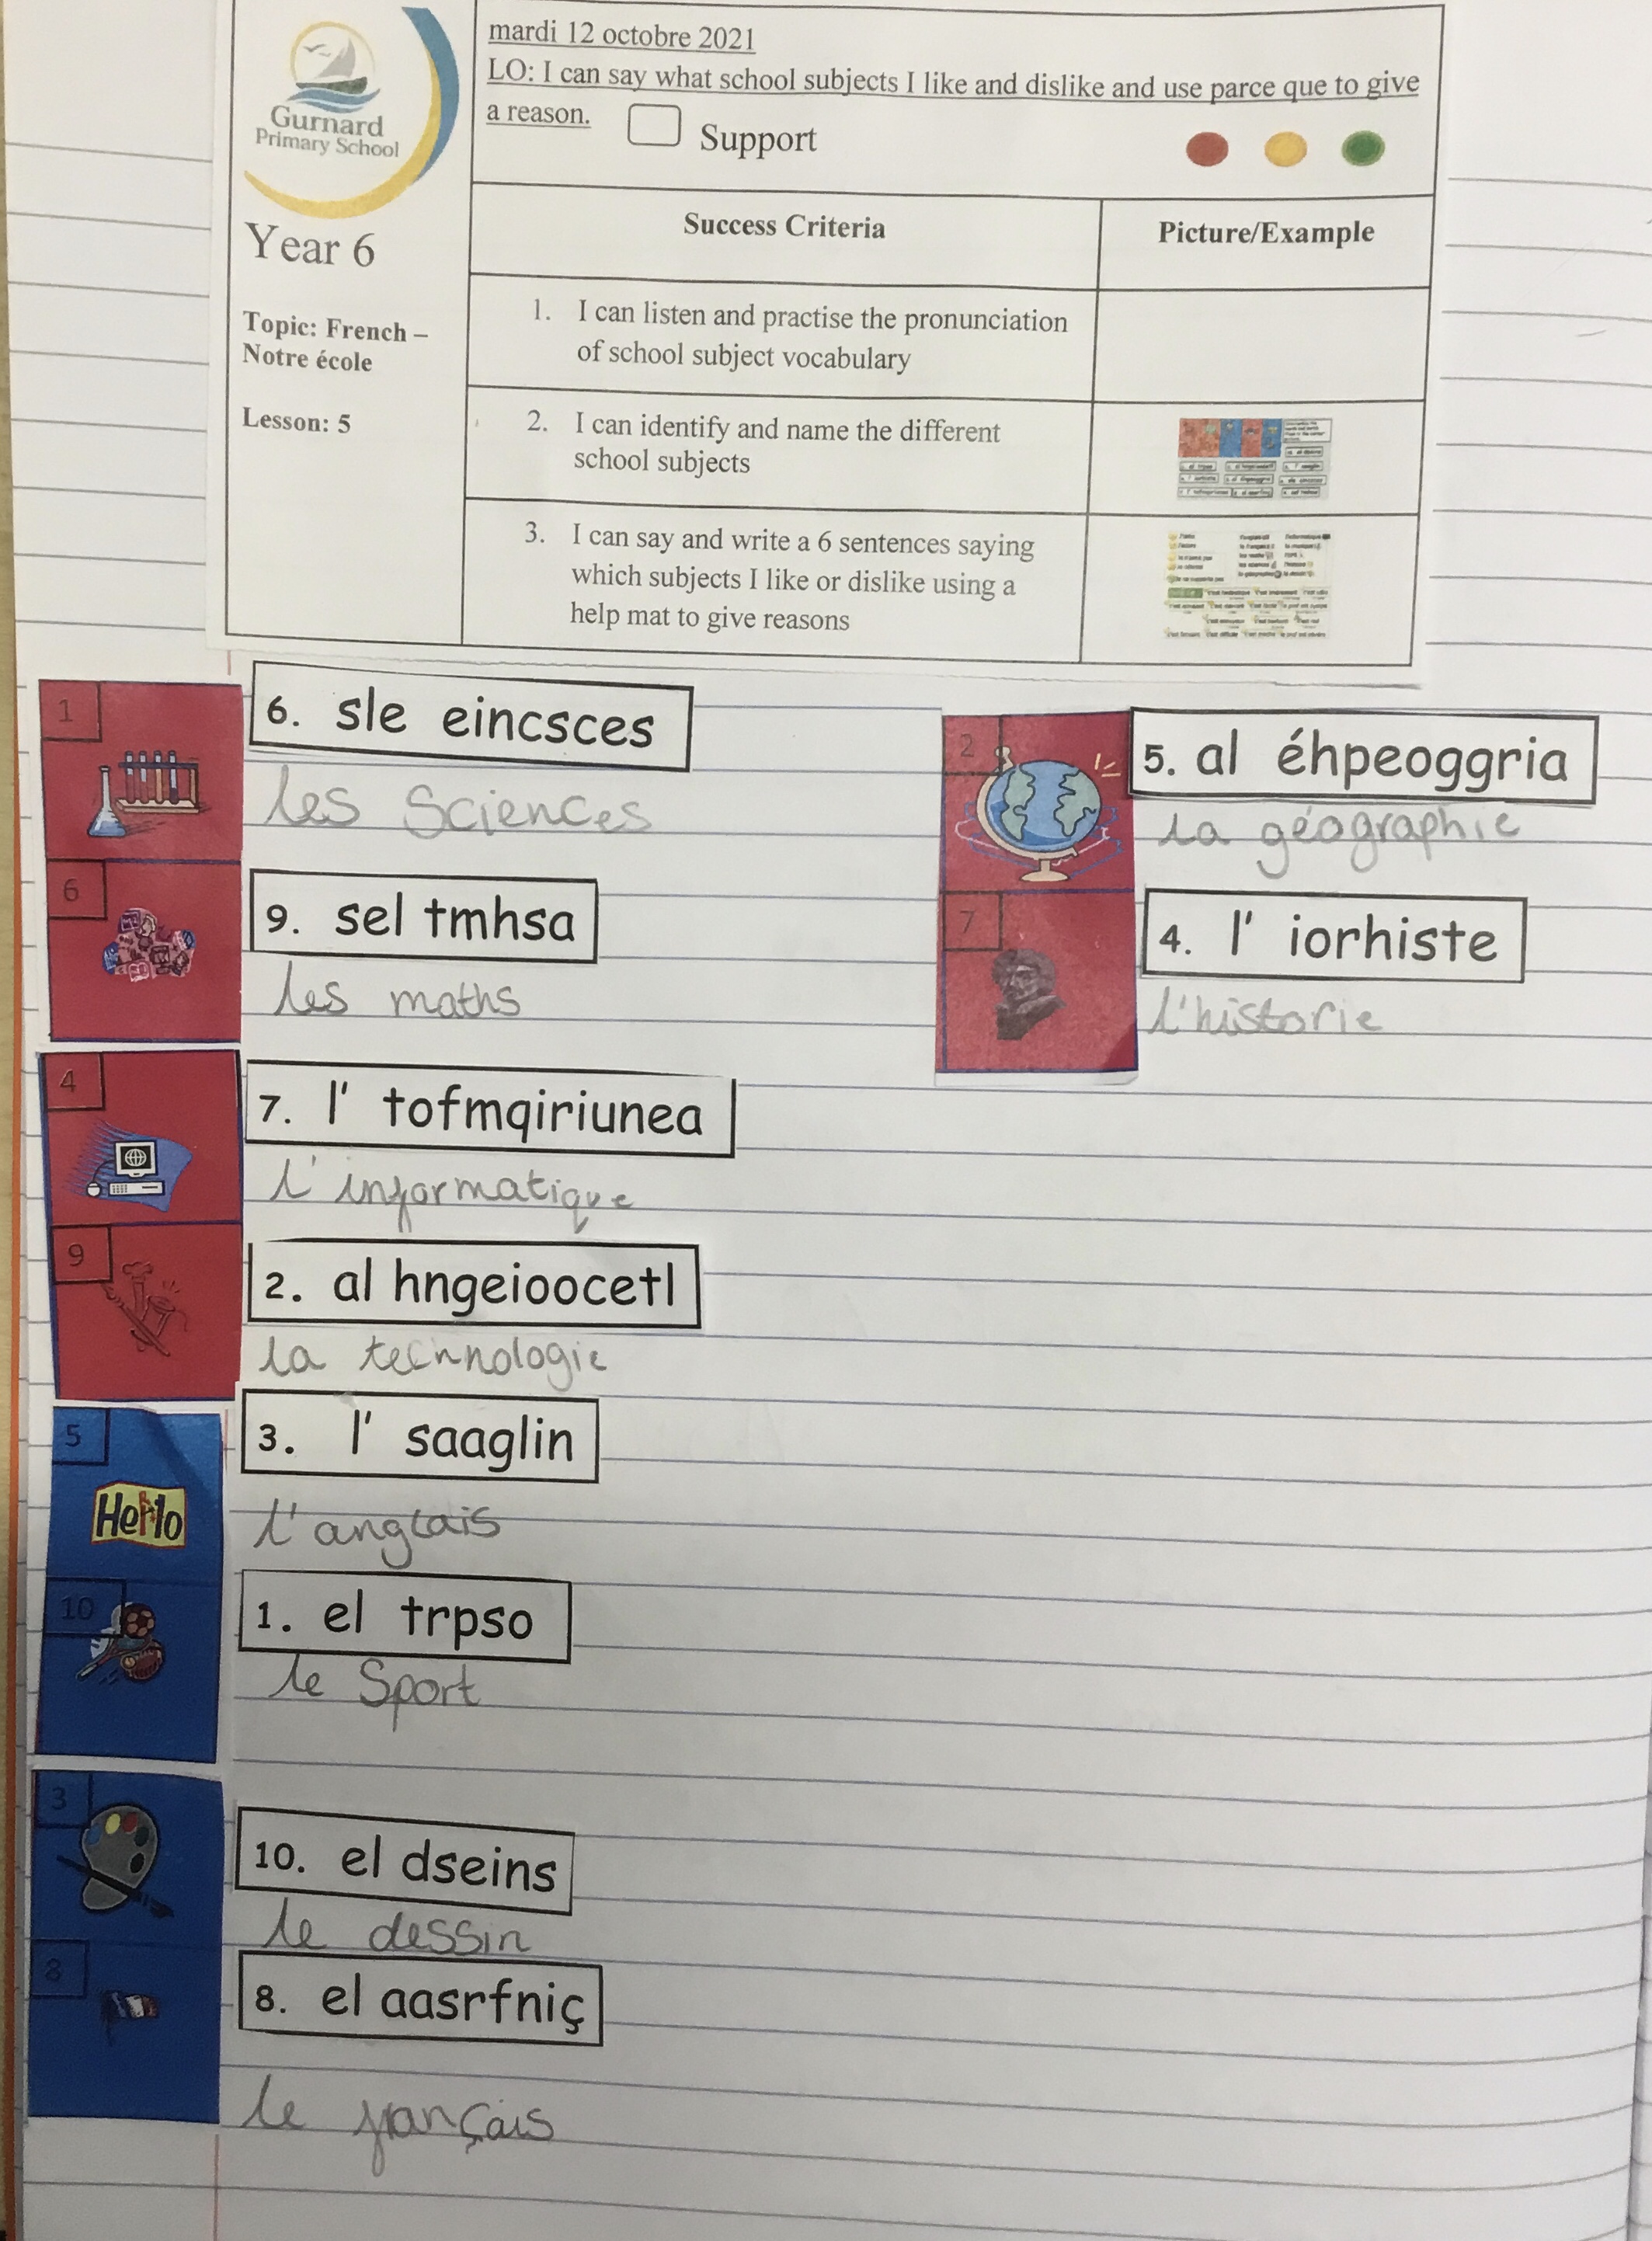 Gurnard
Primary School
Year 6
Topic: French –
Notre école
Lesson: 5
mardi 12 octobre 2021
LO: I can say what school subjects I like and dislike and use parce que to give
a reason.
Support
Success Criteria
Picture/Example
1. I can listen and practise the pronunciation
of school subject vocabulary
2. I can identify and name the different
school subjects
3. I can say and write a 6 sentences saying
which subjects I like or dislike using a
help mat to give reasons
1
6. sle eincsces
les Sciences
6
9. sel tmhsa
les maths
2
5. al éhpeoggria
la géographie
7
4. l' iorhiste
l'historie
4
7. l' tofmqiriunea
l'informatique
9
2. al hngeioocetl
la technologie
5
Hello
3. l' saaglin
l'anglais
10
1. el trpso
le Sport
3
10. el dseins
le dessin
8
8. el aasrfniç
le français